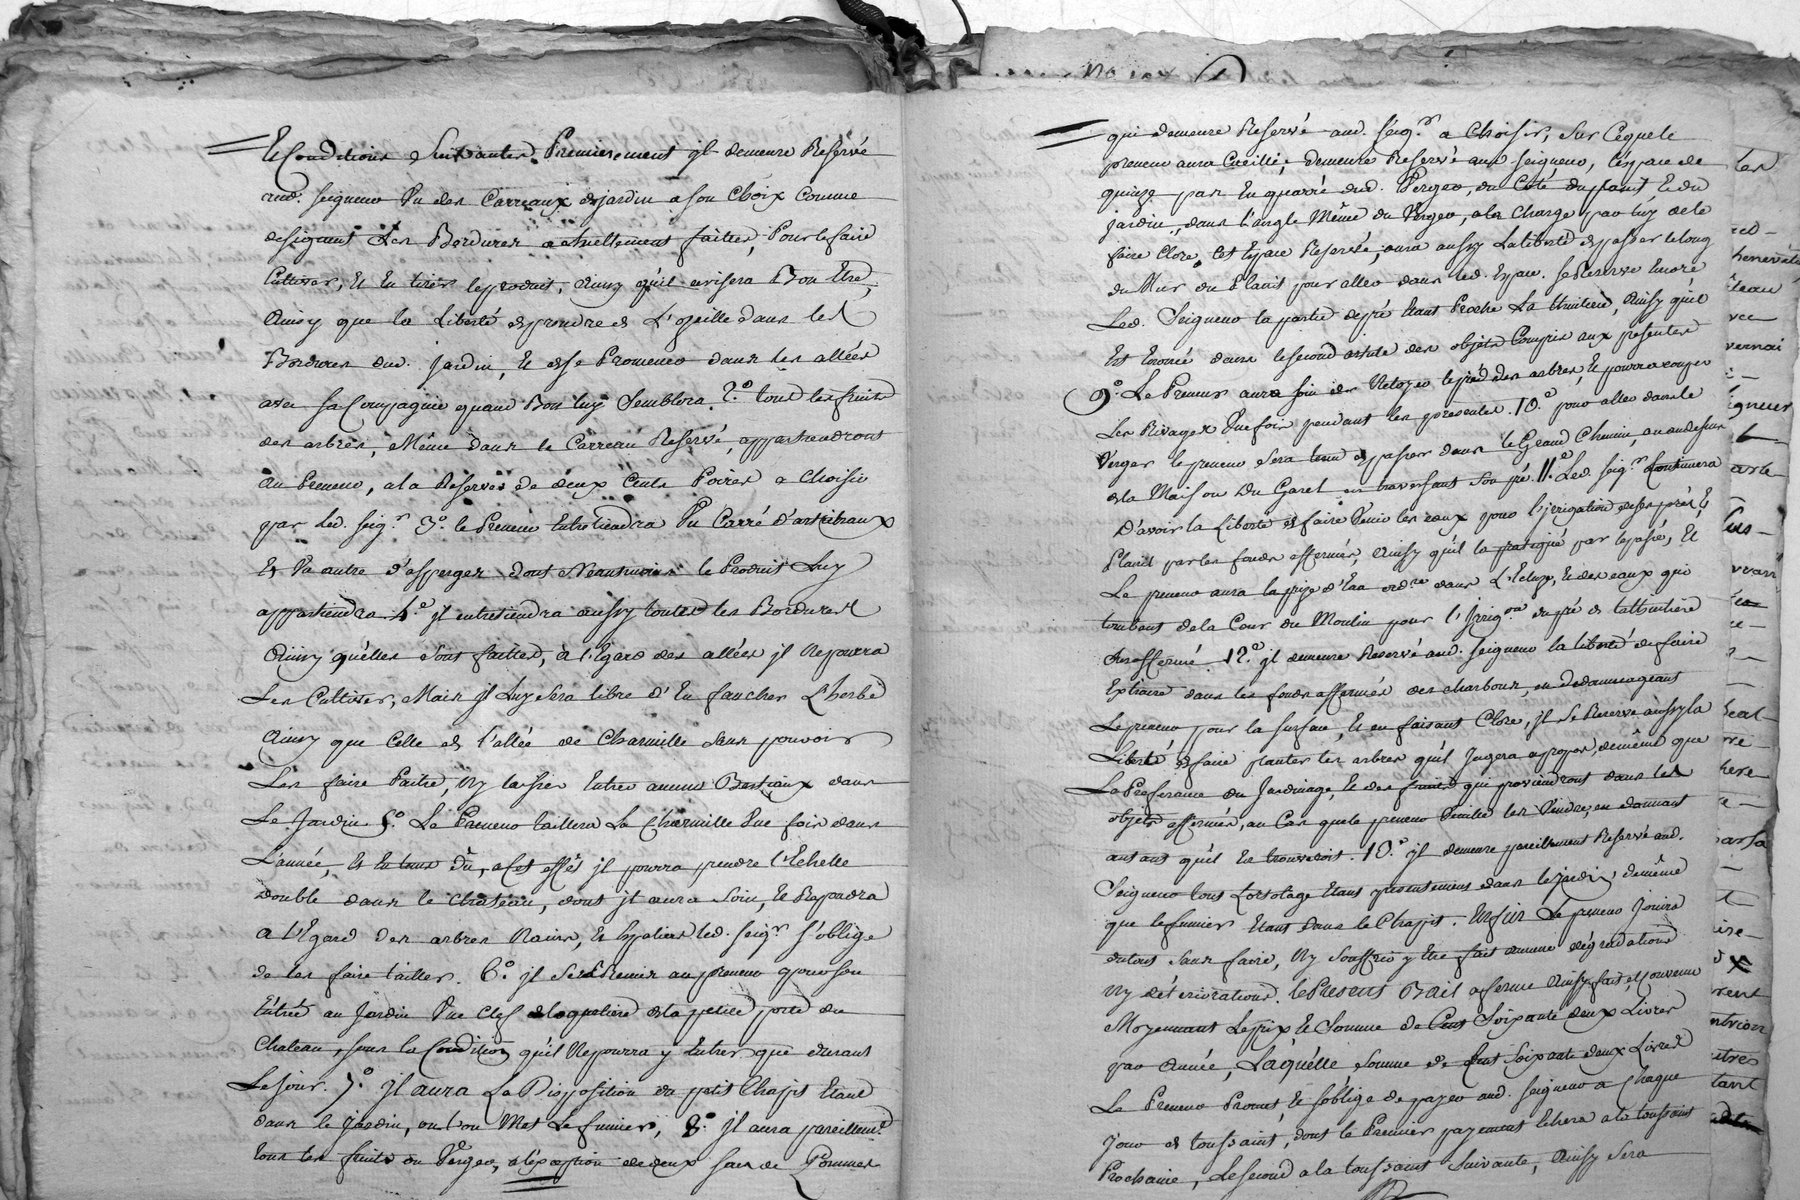 Et Conditions Suivantes Premierement jl demeure Reservé
aud. seigneur Un des Carreaux de jardin a son Choix Comme
designent Les Bordures actuellement faittes, Pour le faire
Cultiver, Et En tirer le produit, Ainsy qu'il avisera Bon Etre,
Ainsy que la Liberté de prendre de L'ozeille dans les
Bordures dud. Jardin, Et de se Promener dans les allées
avec sa Compagnie quand Bon luy Semblera. 2.º tous les fruits
des arbres, Même dans le Carreau Reservé, appartiendront
au Preneur, a la Réserve de deux Cents Poires a Choisir
par led. seig.r 3.º le Preneur Entretiendra Un Carré d'artichaux
Et Un autre d'asperges dont Neantmoins le Produit Luy
appartiendra 4.º jl entretiendra aussy toutes les Bordures
Ainsy qu'elles sont faittes, à l'Egard des allées jl Ne pourra
Les Cultiver, Mais jl Luy sera libre d'En faucher L'herbe
Ainsy que Celle de l'allée de Charmille sans pouvoir
Les faire Paitre, Ny laisser Entrer aucuns Bestiaux dans
Le Jardin 5.º Le Preneur taillera La Charmille Une fois dans
L'année, Et En tems Dû, a Cet effet jl pourra prendre l'Echelle
double dans le chateau, dont jl aura soin, Et Repondra
a l'Egard des arbres Nains, Et Espaliers led. seig.r s'oblige
de les faire tailler. 6.º jl sera Remis au preneur pour son
Entrée au Jardin Une Clef de la petite porte du
Chateau, sous la Condition qu'il Ne pourra y Entrer que durant
Le Jour. 7.º jl aura La Disposition du petit Chapit Etant
dans le jardin, ou l'on Met Le fumier, 8.º jl aura pareillem.t
tous les fruits du Verger, a l'exception de deux sacs de Pommes
qui demeure Reservé aud. seig.r a Choisir, sur Ce que le
preneur aura Cueilli, demeure Reservé aud. seigneur, l'espace de
quinze pas En quarré dud. Verger, du Côté du plant Et du
jardin, dans l'angle Même du Verger, a la Charge par luy de le
faire Clore, Cet Espace Reservé, aura aussy La liberté de passer le long
du Mur du Plant pour aller dans led. Espace. se Reserve Encore
Led. Seigneur la partie de pré Etant Proche La thuilerie, Ainsy qu'il
Est Enoncé dans le second article des objets Compris aux presentes
9.º Le Preneur aura soin de Netoyer le pied des arbres, Et pourra couper
Les Rivages Une fois pendant les presentes. 10.º pour aller dans le
Verger le preneur sera tenu de passer dans le Grand Chemin, au dessus
de la Maison Du Garet en traversant son pré. 11.º Led. seig.r Continuera
D'avoir la Liberté de faire Venir les eaux pour l'irrigation de ses prés, Et
Plant par les fonds affermés, Ainsy qu'il l'a pratiqué par le passé, Et
Le preneur aura la prise d'Eau ord.re dans L'Ecluze, Et des eaux qui
tombent de la Cour du Moulin pour l'jrrig.on du pré de la thuiliere
Susaffermé. 12.º jl demeure Reservé aud. seigneur la liberté de faire
Extraire dans les fonds affermés des charbons, en dedommageant
Le preneur pour la surface, Et en faisant Clore, jl se Reserve aussy la
Liberté de faire planter les arbres qu'il Jugera a propos, de même que
La Preference du Jardinage, Et des fruits qui proviendront dans les
objets affermés, au Cas que le preneur Veuille les Vendre, en donnant
autant qu'il En trouveroit. 13.º jl demeure pareillement Reservé aud.
Seigneur tous L'ortolage Etant presentement dans le jardin, de même
que le fumier Etant dans le Chapit. Enfin Le preneur Jouira
du tout sans faire, Ny souffrir y Etre fait aucune dégradations
Ny déteriorations. Le Present Bail a ferme Ainsy fait, Et Convenu
Moyennant Le prix Et Somme de Cent Soixante deux Livres
par Année, Laquelle somme de Cent Soixante deux Livres
Le Preneur Promet, Et s'oblige de payer aud. Seigneur a Chaque
Jour de toussaint, dont le Premier payement Echera a la toussaint
Prochaine, Le second a la toussaint Suivante, Ainsy sera